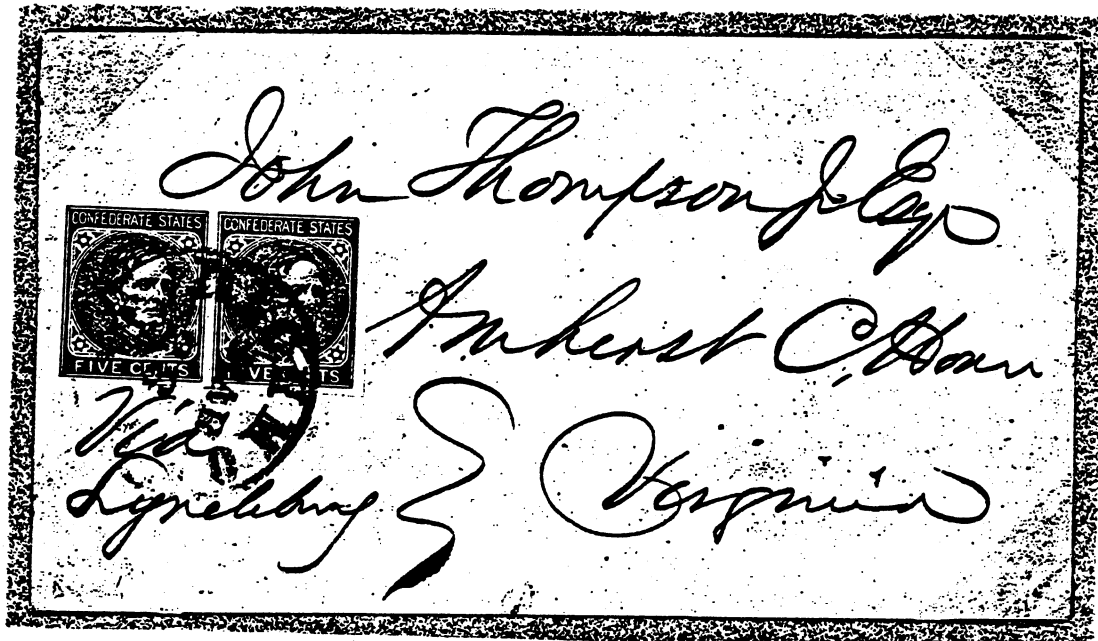 John Thompson Jr Esqr
CONFEDERATE STATES CONFEDERATE STATES
FIVE CENTS
Amherst C. House
Via
Lynchburg
Virginia